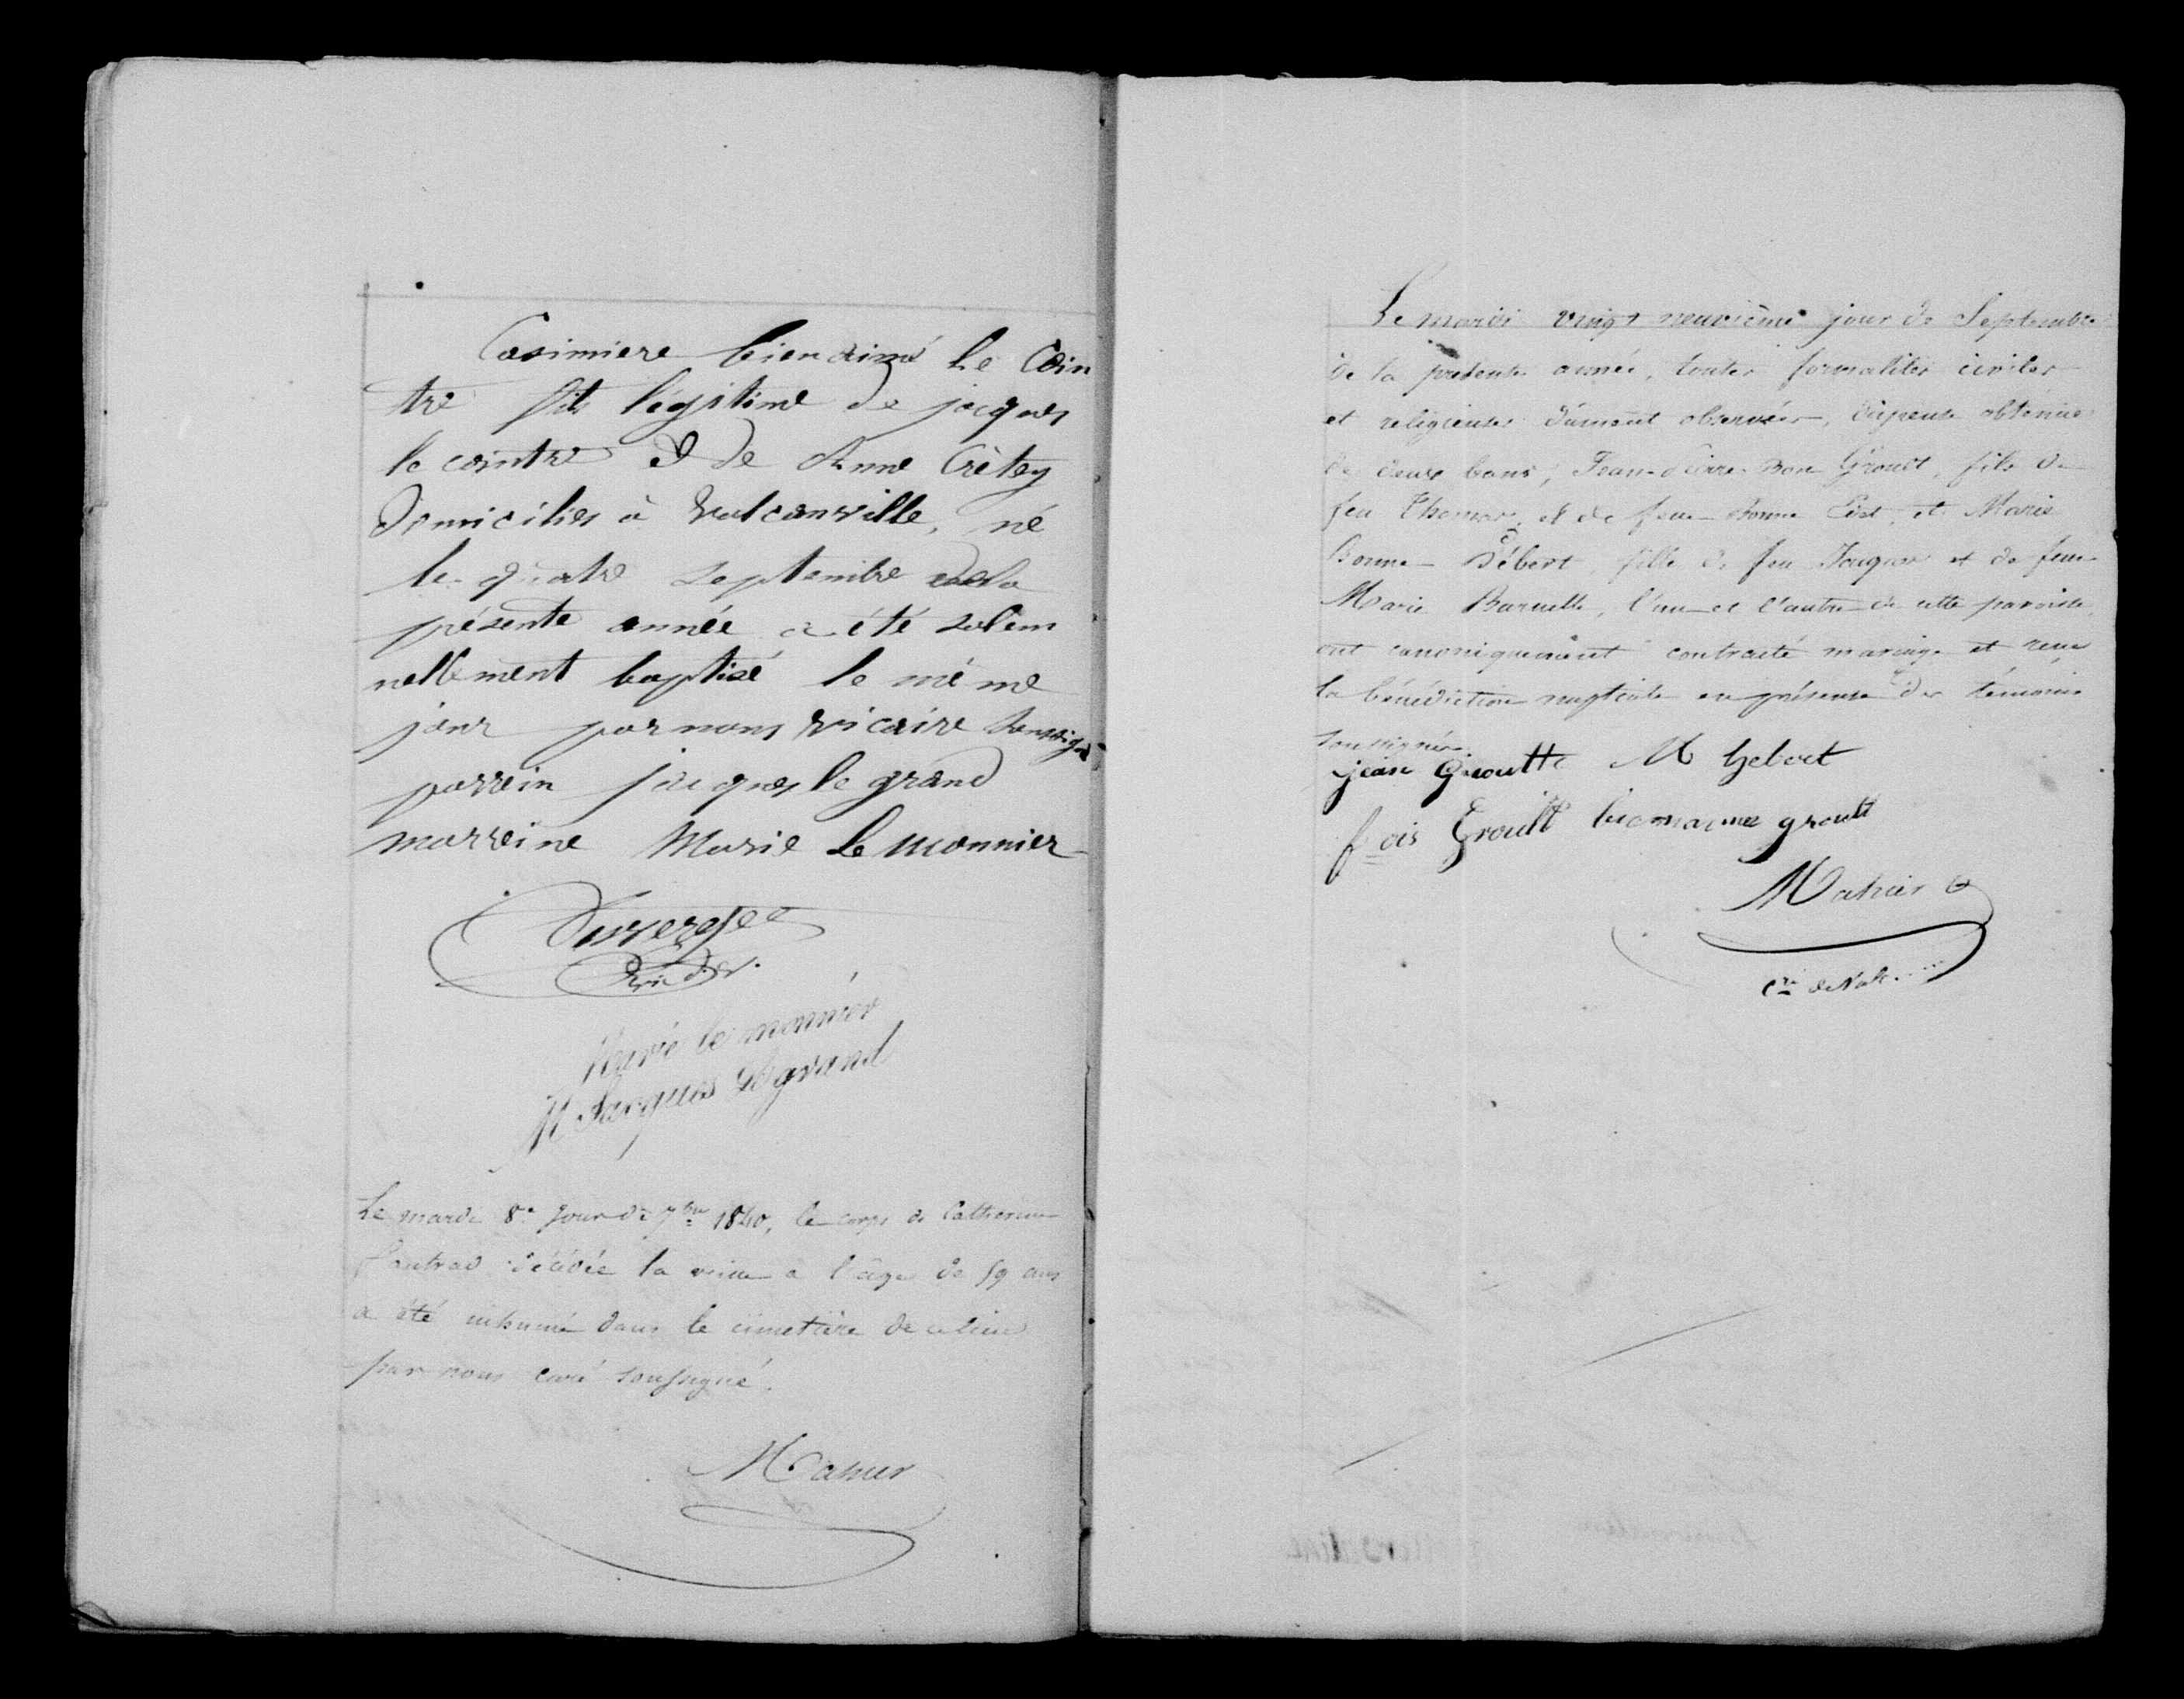 Casimiere bien aimé le Coin
tre fils légitime de jacques
le cointre & de Anne Crétey
domiciliés à valcanville, né
le quatre septembre de la
présente année a été solem
nellement baptisé le même
jour par nous vicaire soussigné
parrein jacques le grand
marreine Marie le monnier
Marie le monnier
Jacques Legrand
Le mardi 8e jour de 7bre 1840, le corps de Catherine
décédée la veille a l'âge de 59 ans
a été inhumé dans le cimetière de ce lieu
par nous curé soussigné.
Mahier
Le mardi vingt neuvième jour de Septembre
de la présente année, toutes formalités civiles
et religieuses dument observées, dispense obtenue
de deux bans, Jean-Pierre-Bon Groult, fils de
feu Thomas, et de feue Bonne et Marie
Bonne Hébert, fille de feu Jacques et de feue
Marie Burnelle, l'un et l'autre de cette paroisse,
ont canoniquement contracté mariage et reçu
la bénédiction nuptiale en présence des témoins
soussignés.
jean Groult M hebert
fois Groult bienaimee groult
Mahier
cré de Valc